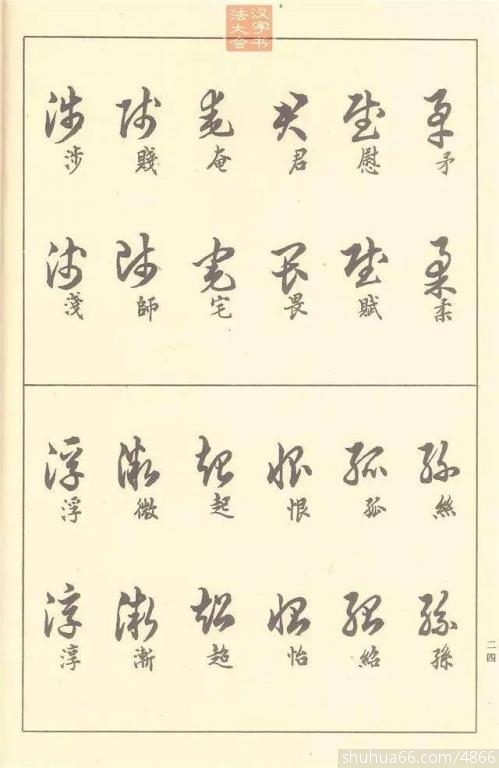 汉字书
法大会
矛 慰 君 奄 賤 涉
柔 賦 畏 宅 師 淺
絲 孤 恨 起 微 浮
孫 紹 怡 超 漸 淳
二四
shuhua66.com/4866